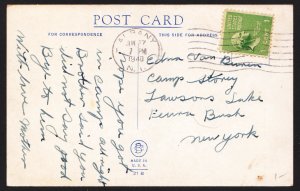 POST CARD
FOR CORRESPONDENCE
THIS SIDE FOR ADDRESS
ALBANY
1 PM
1940
N.Y.
Hope you got
in camp all right
Brother said you
did not say good
Bye to him
With love Mother
Edna Van Buren
Camp Stoney
Lawsons Lake
Feura Bush
New York
MADE IN
U.S.A.